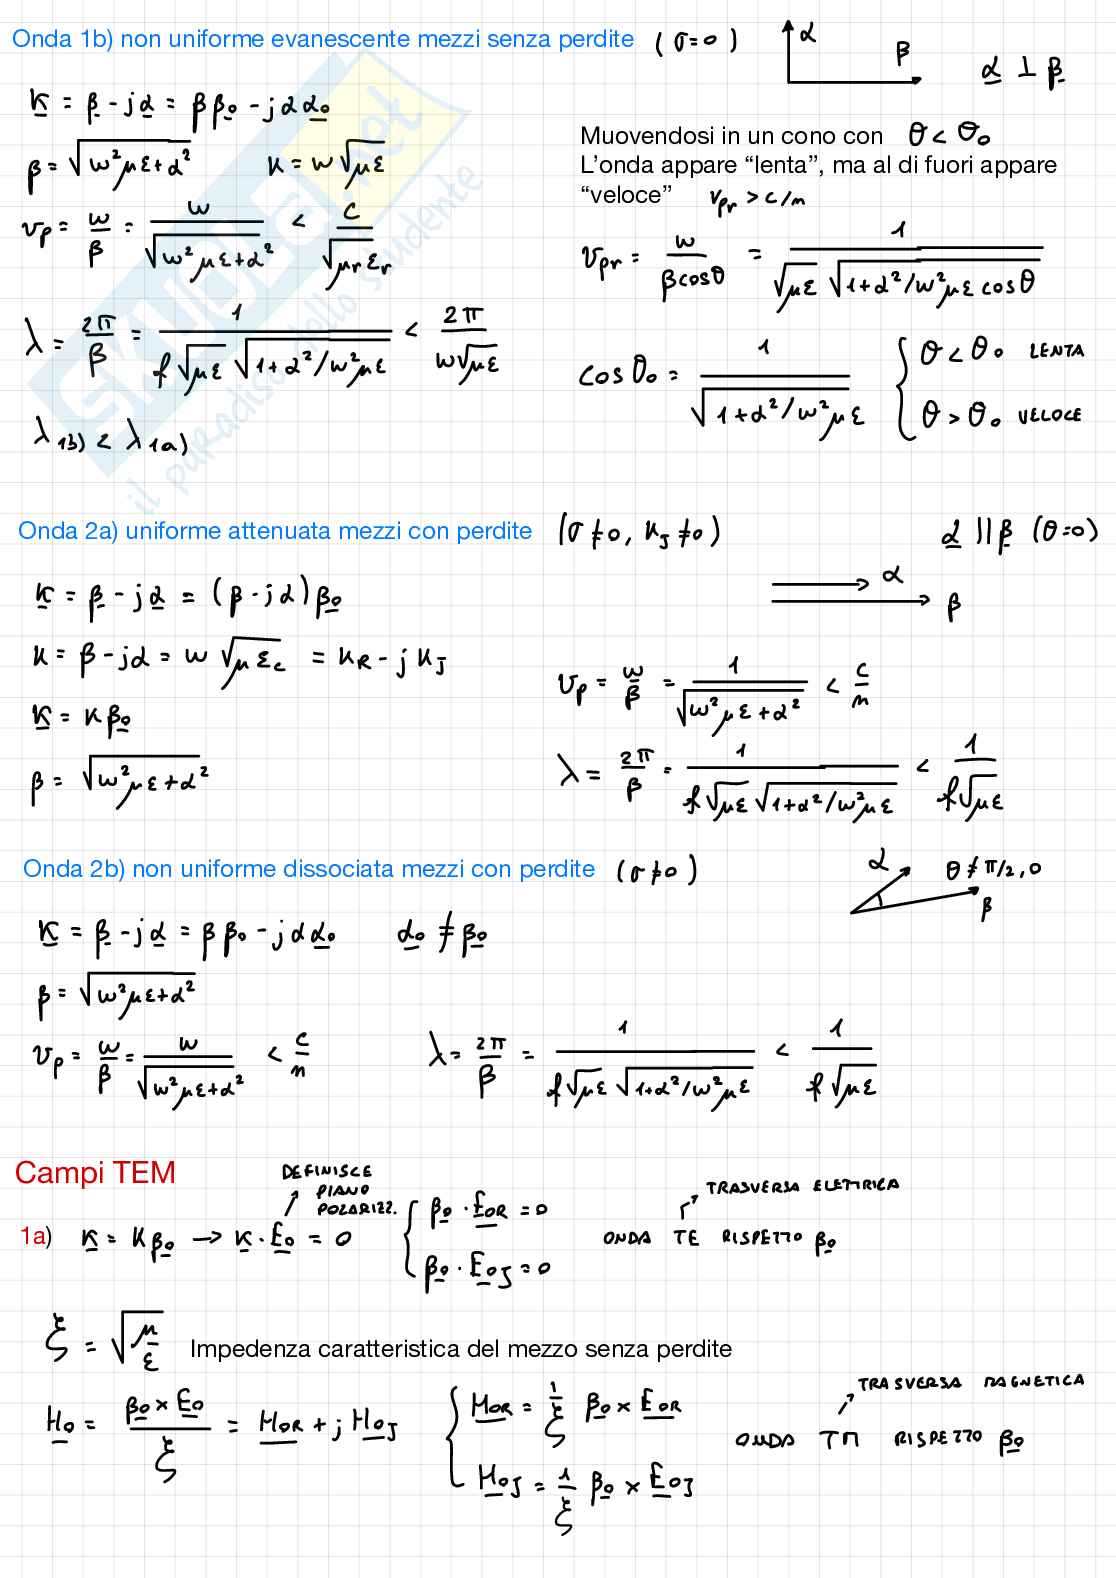 Onda 1b) non uniforme evanescente mezzi senza perdite (σ=0)
α
β
α ⊥ β
κ = β - jα = β β₀ - jα α₀
β = √(ω²με+α²)    κ = ω√(με)
v_p = ω/β = ω/√(ω²με+α²) < c/√(μr εr)
λ = 2π/β = 1/(f√(με) √(1+α²/ω²με)) < 2π/(ω√(με))
λ 1b) < λ 1a)
Muovendosi in un cono con θ < θ₀
L’onda appare “lenta”, ma al di fuori appare
“veloce” v_pr > c/n
v_pr = ω/(β cosθ) = 1/(√(με) √(1+α²/ω²με cosθ))
cosθ₀ = 1/√(1+α²/ω²με)
{ θ < θ₀ LENTA
θ > θ₀ VELOCE
Onda 2a) uniforme attenuata mezzi con perdite (σ≠0, κ_J≠0)
α || β (θ=0)
α
β
κ = β - jα = (β - jα)β₀
κ = β - jα = ω√(με_c) = κ_R - j κ_J
κ = κβ₀
β = √(ω²με+α²)
v_p = ω/β = 1/√(ω²με+α²) < c/n
λ = 2π/β = 1/(f√(με) √(1+α²/ω²με)) < 1/(f√(με))
Onda 2b) non uniforme dissociata mezzi con perdite (σ≠0)
α
θ ≠ π/2, 0
β
κ = β - jα = β β₀ - jα α₀    α₀ ≠ β₀
β = √(ω²με+α²)
v_p = ω/β = ω/√(ω²με+α²) < c/n
λ = 2π/β = 1/(f√(με) √(1+α²/ω²με)) < 1/(f√(με))
Campi TEM
DEFINISCE
PIANO
POLARIZZ.
1a) κ = κβ₀ → κ · E₀ = 0
{ β₀ · E₀R = 0
β₀ · E₀J = 0
TRASVERSA ELETTRICA
ONDA TE RISPETTO β₀
ξ = √(μ/ε) Impedenza caratteristica del mezzo senza perdite
H₀ = (β₀ × E₀)/ξ = H₀R + j H₀J
{ H₀R = 1/ξ β₀ × E₀R
H₀J = 1/ξ β₀ × E₀J
TRASVERSA MAGNETICA
ONDA TM RISPETTO β₀
SKUOLA.net
il paradiso dello studente